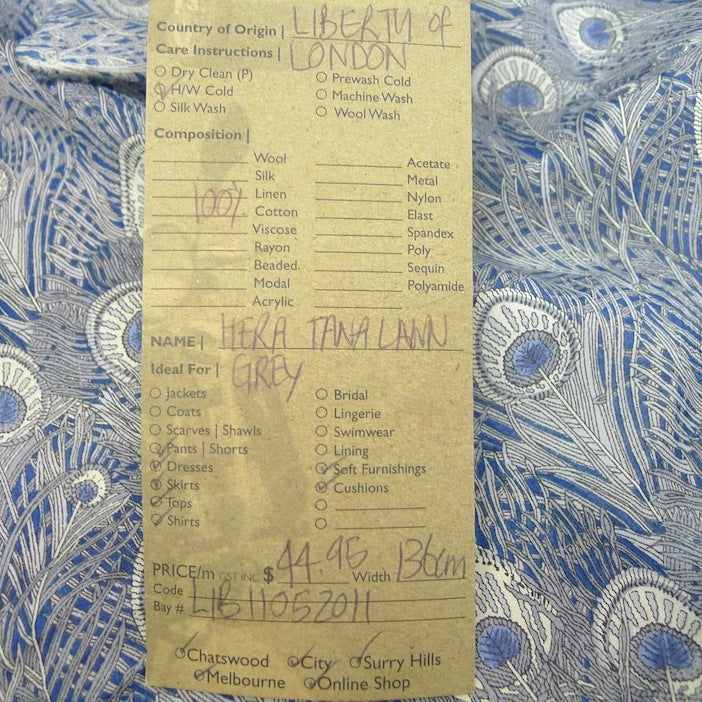 Country of Origin | LIBERTY of
Care Instructions | LONDON
Dry Clean (P) Prewash Cold
H/W Cold Machine Wash
Silk Wash Wool Wash
Composition |
Wool Acetate
Silk Metal
Linen Nylon
100% Cotton Elast
Viscose Spandex
Rayon Poly
Beaded Sequin
Modal Polyamide
Acrylic
NAME | HERA TANA LAWN
Ideal For | GREY
Jackets Bridal
Coats Lingerie
Scarves | Shawls Swimwear
Pants | Shorts Lining
Dresses Soft Furnishings
Skirts Cushions
Tops
Shirts
PRICE/m GST INC $ 44.95 Width 136cm
Code
Bay # LIB11052011
Chatswood City Surry Hills
Melbourne Online Shop